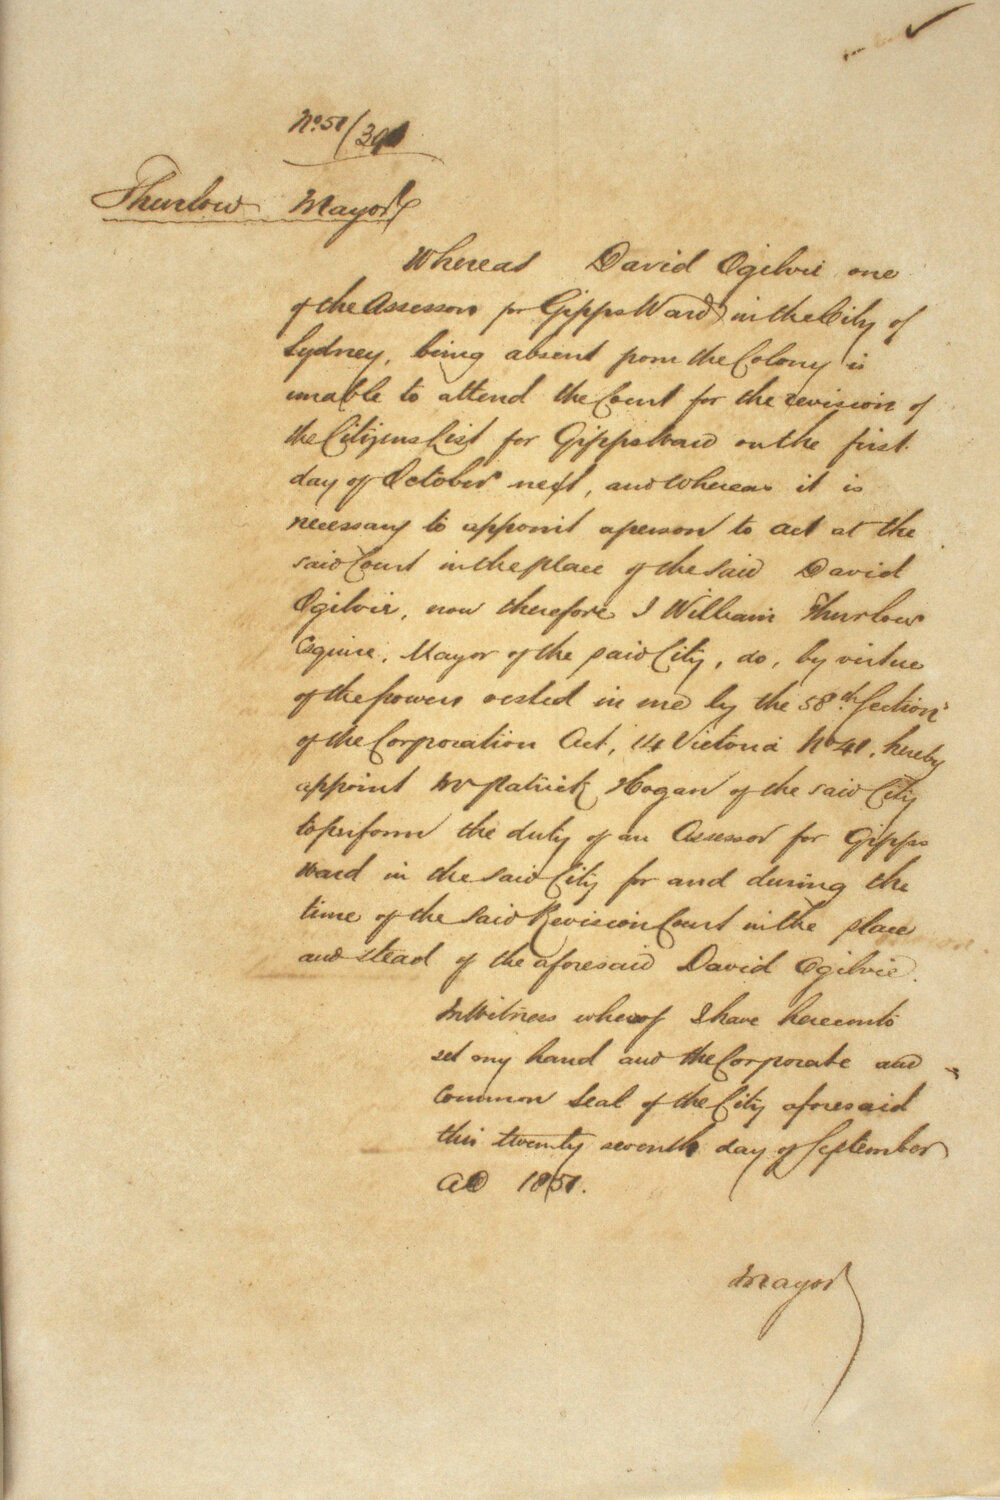 No. 51/
Thurlow Mayor
Whereas David Ogilvie one
of the Assessors for Gipps Ward in the City of
Sydney, being absent from the Colony is
unable to attend the Court for the revision of
the Citizens List for Gipps Ward on the first
day of October next, and whereas it is
necessary to appoint a person to act at the
said Court in the place of the said David
Ogilvie, now therefore I William Thurlow
Esquire, Mayor of the said City, do, by virtue
of the powers vested in me by the 58th Section
of the Corporation Act, 14 Victoria No 41, hereby
appoint Mr Patrick Hogan of the said City
to perform the duty of an Assessor for Gipps
Ward in the said City for and during the
time of the said Revision Court in the place
and stead of the aforesaid David Ogilvie.
In Witness whereof I have hereunto
set my hand and the Corporate and
Common Seal of the City aforesaid
this twenty seventh day of September
AD 1851.
Mayor